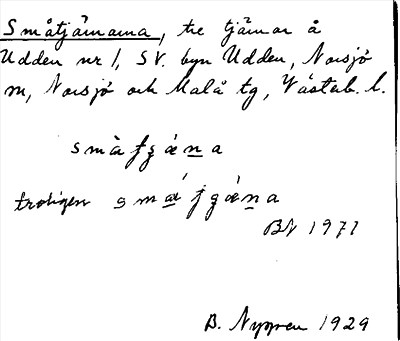 Småtjärnarna, tre tjärnar å
Udden nr 1, SV. byn Udden, Norsjö
sn, Norsjö och Malå tg, Västerb. l.
småtjæna
troligen småtjæna
BN 1971
B. Nygren 1929